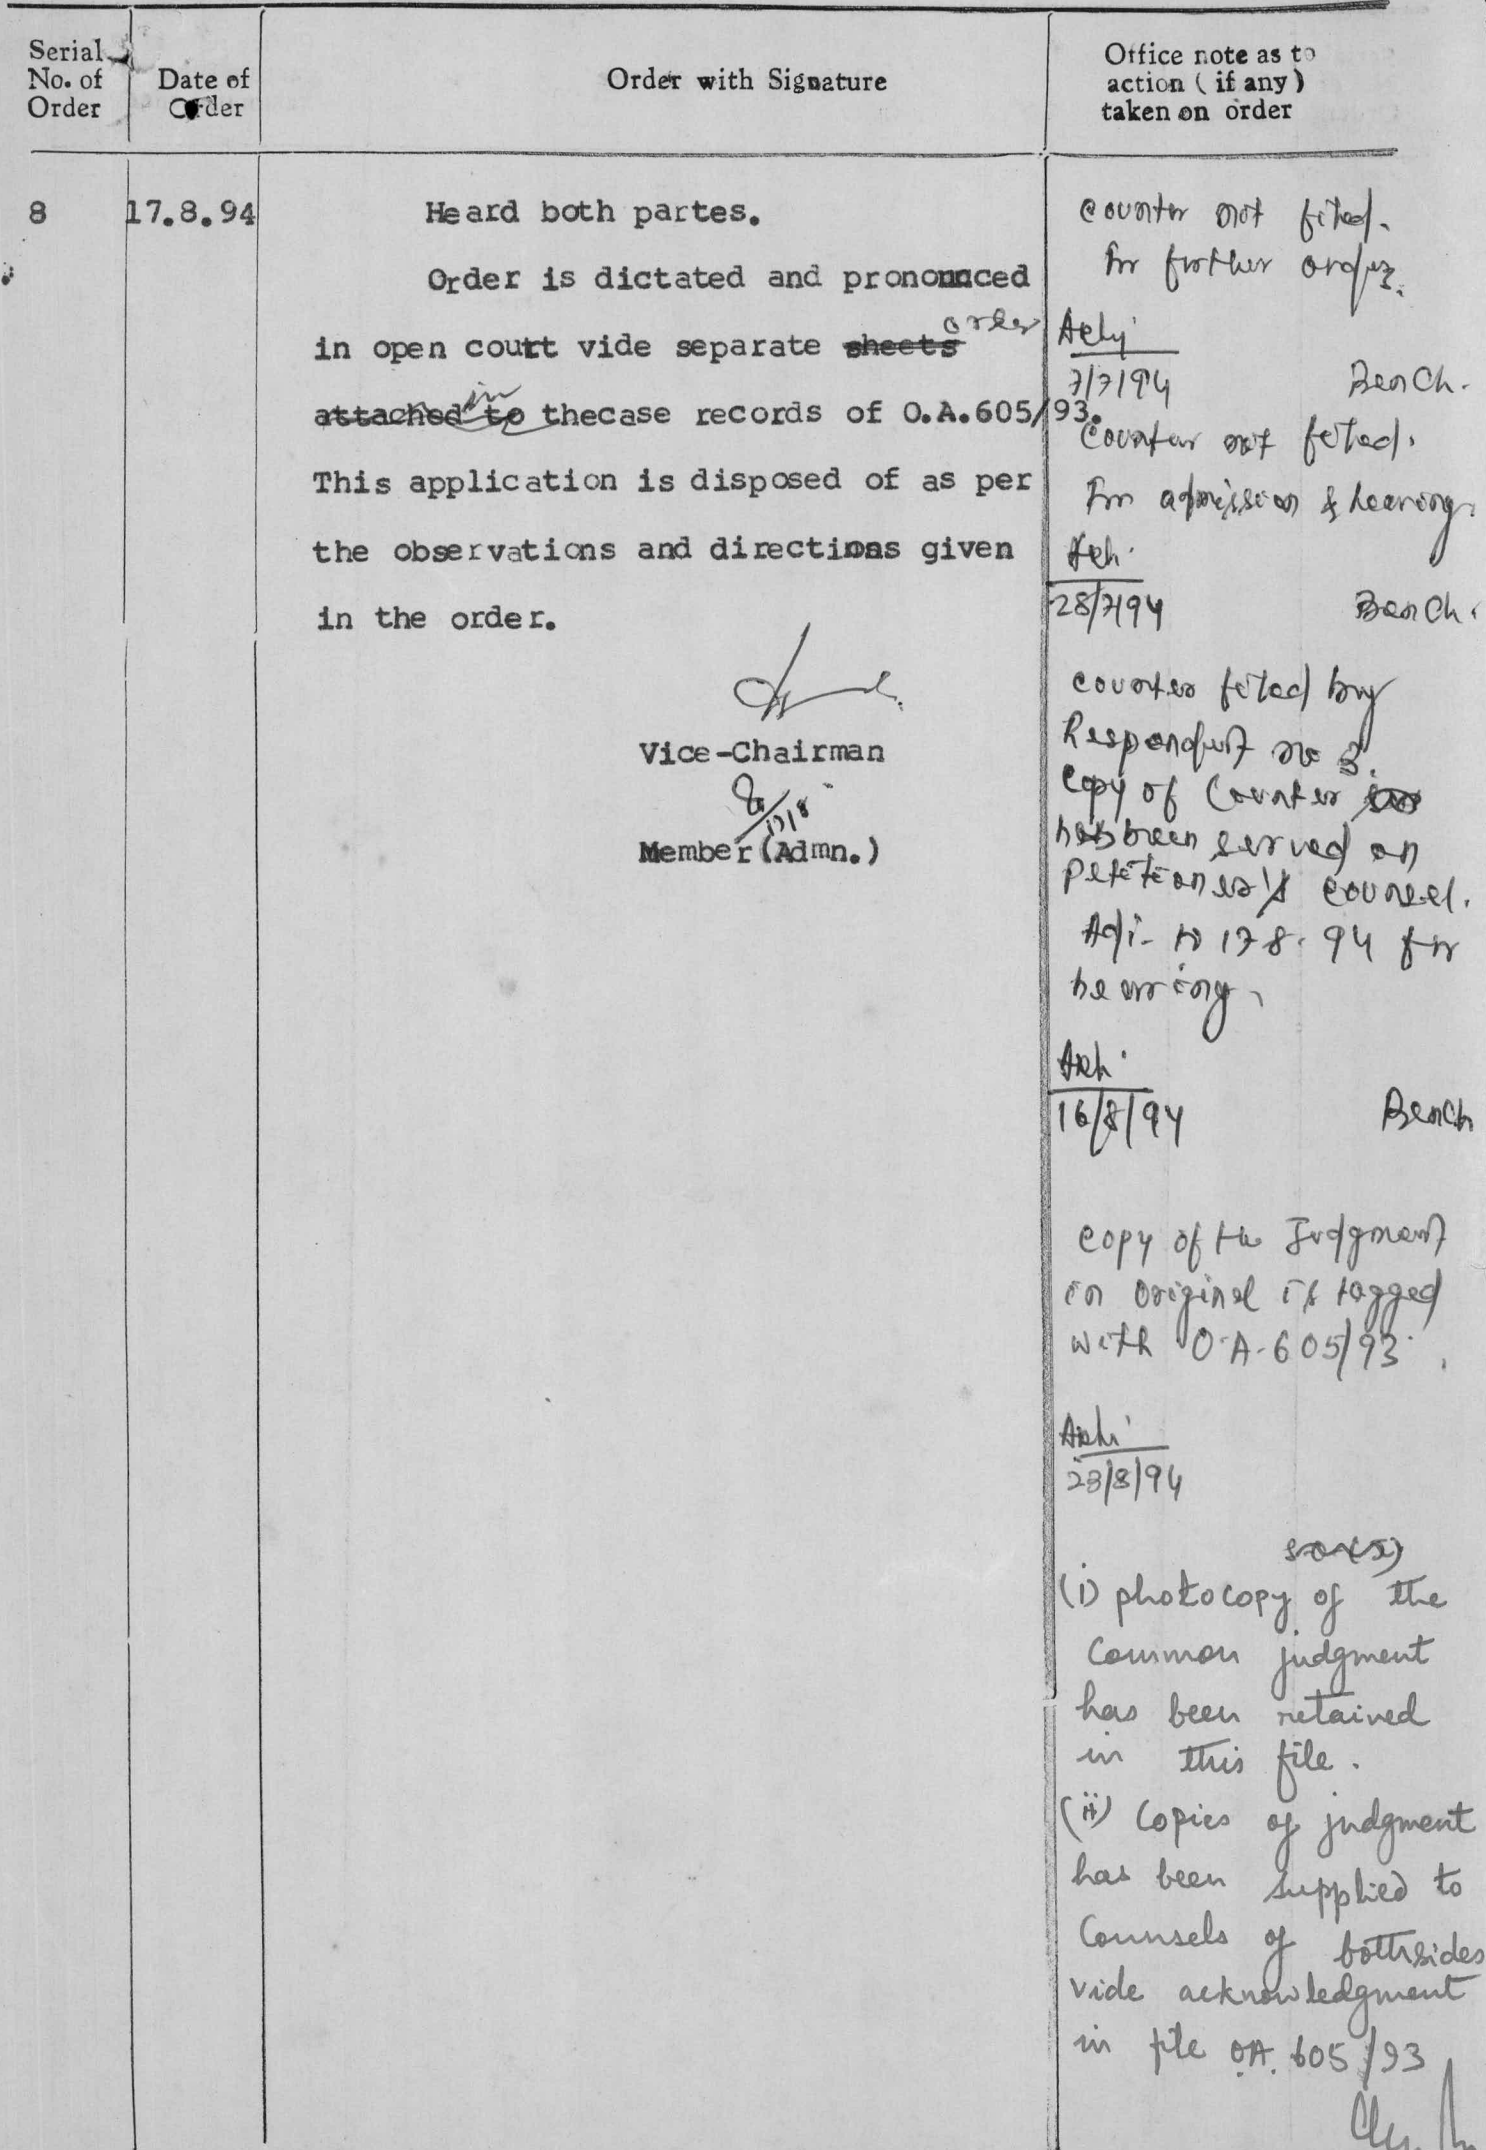 Serial
No. of
Order
Date of
Order
Order with Signature
Office note as to
action (if any)
taken on order
8
17.8.94
Heard both partes.
Order is dictated and pronounced
in open court vide separate sheets order
attached to in thecase records of O.A.605/93.
This application is disposed of as per
the observations and directions given
in the order.
Vice-Chairman
17/8
Member(Admn.)
Counter not filed.
For further orders.
7/7/94
Bench.
Counter not filed.
For admission & hearing.
28/7/94
Bench.
Counter filed by
Respondent no 3.
Copy of Counter
has been served on
petitioner's counsel.
Adj. to 17.8.94 for
hearing.
16/8/94
Bench
Copy of the Judgment
in original is tagged
with O.A.605/93.
23/8/94
SO(J)
(i) photocopy of the
Common judgment
has been retained
in this file.
(ii) Copies of judgment
has been supplied to
Counsels of bothsides
vide acknowledgment
in file OA. 605/93